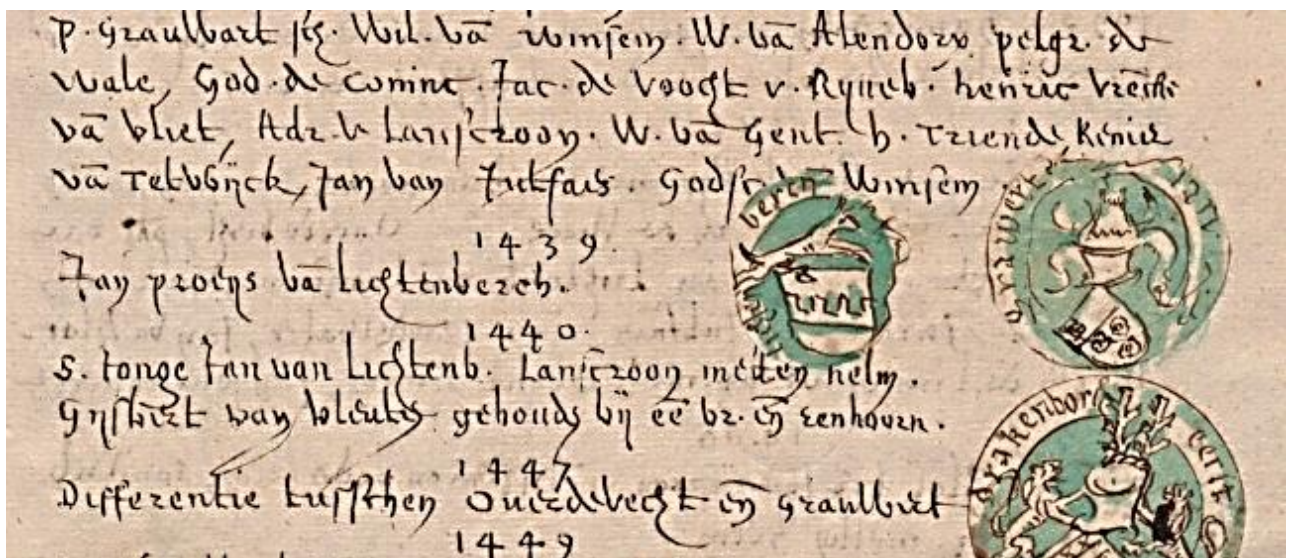 p. Graulwart sch. Wil. vā winsem. W. vā Alendorp pelgr. de
wale, God. de coninc. Jac. de Voocht v. Ryneb. henric
vā vliet, Adr. v Lanscroon. W. vā Gent. h. vriende,
vā Jan van Zulsais. Godsc. Winsem
1439.
Jan proeijs vā lichtenberch.
1440.
S. tonge Jan van Lichtenb. Lanscroon metten helm.
Gijsbert van vleuten gehouds bij ēē br. eñ eenhoern.
1447
Differentie tusschen Ouerdevecht eñ Graulwert
1449
beren
grawert ian
drakenbor eerit